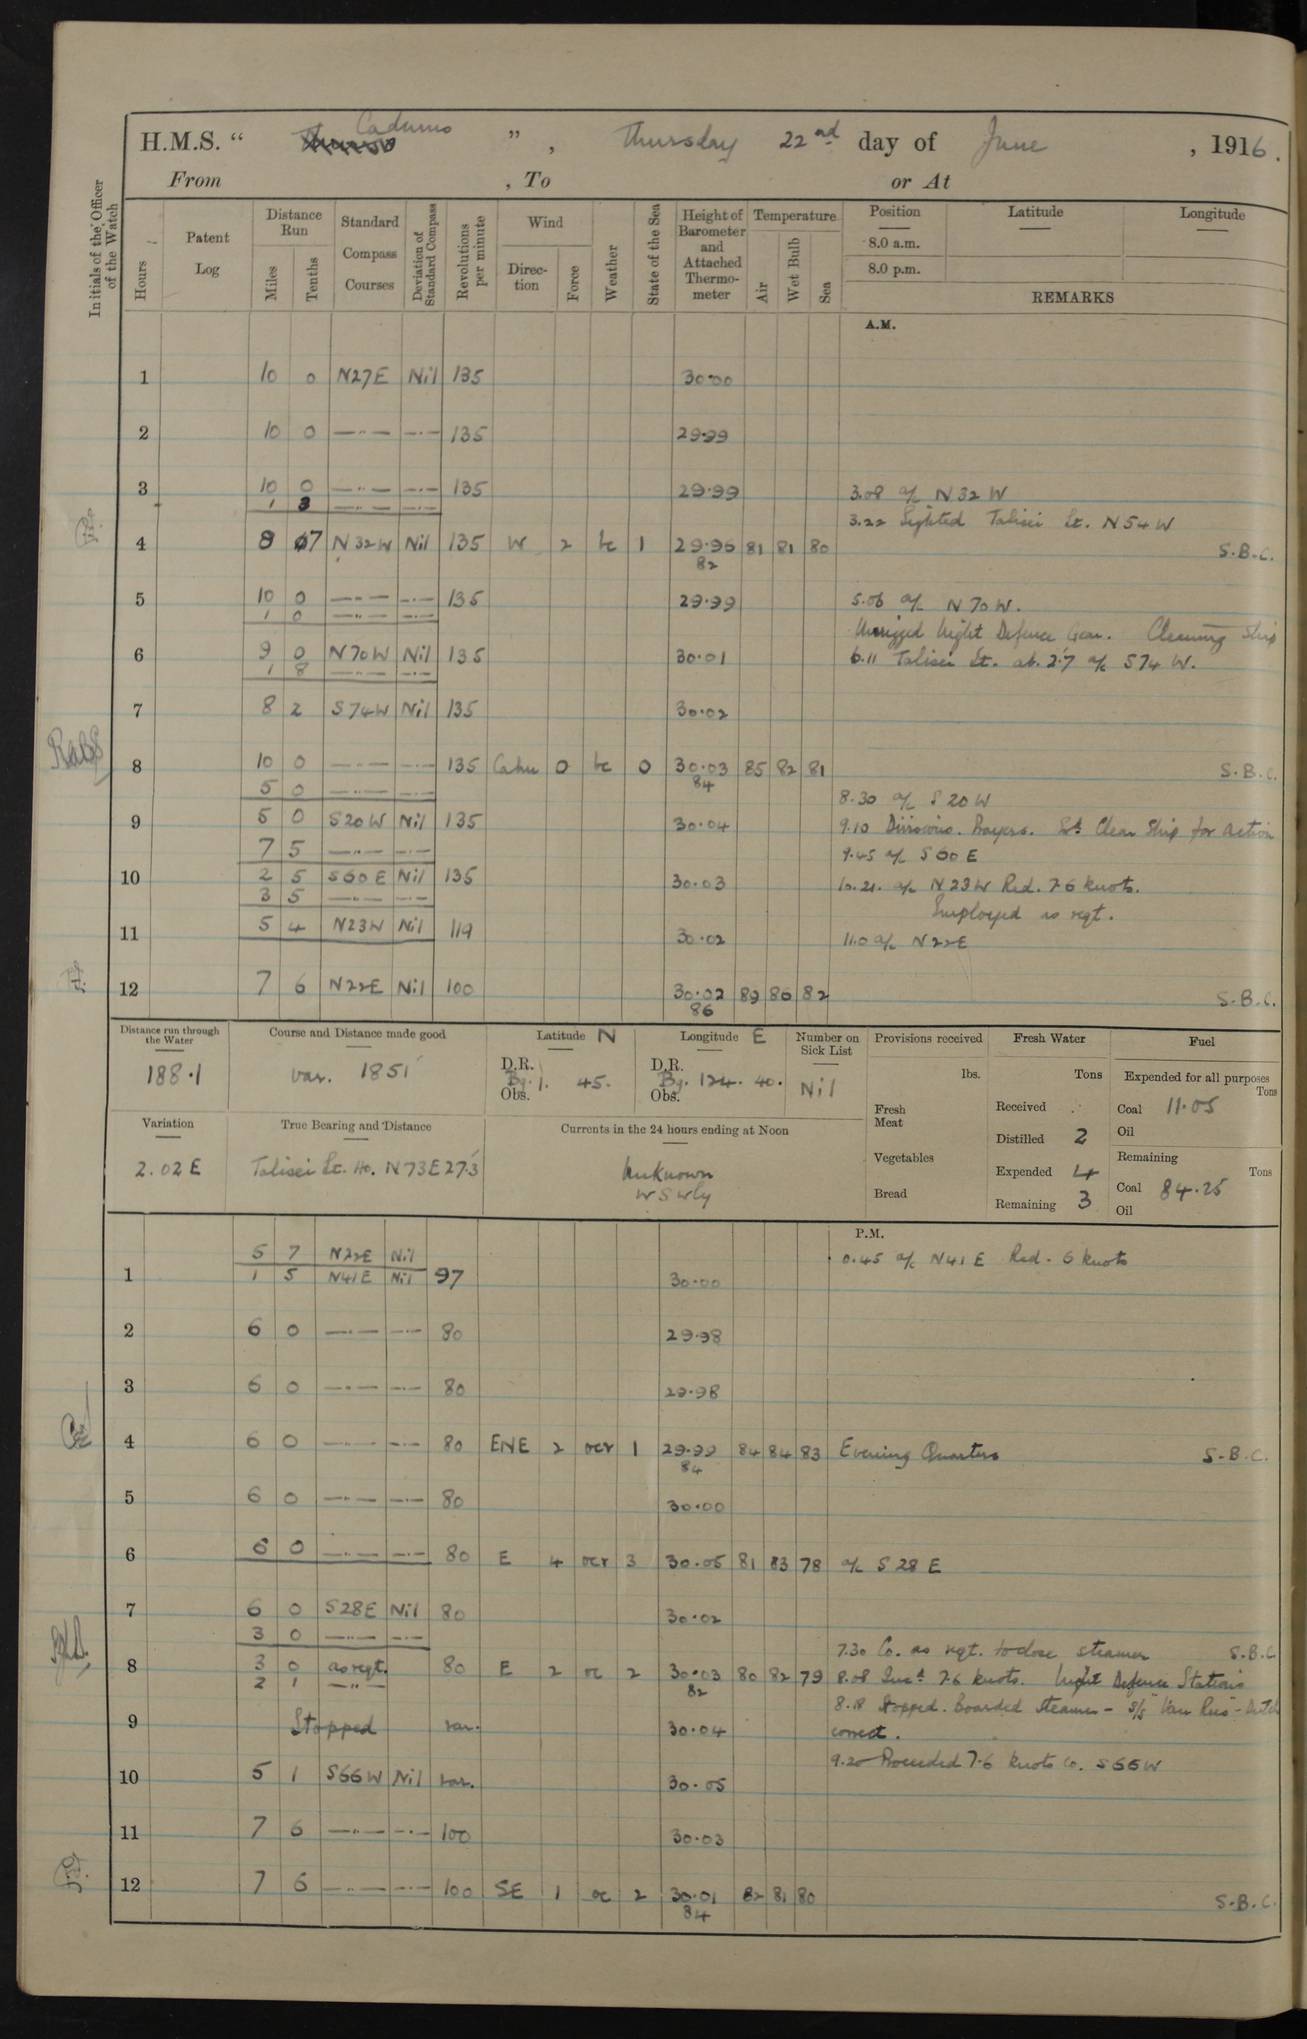 H.M.S. “ Cadmus ” , Thursday 22nd day of June , 1916.
From , To or At
Initials of the Officer of the Watch
Hours
Patent Log
Distance Run
Miles
Tenths
Standard Compass Courses
Deviation of Standard Compass
Revolutions per minute
Wind
Direction
Force
Weather
State of the Sea
Height of Barometer and Attached Thermometer
Temperature
Air
Wet Bulb
Sea
Position Latitude Longitude
8.0 a.m.
8.0 p.m.
REMARKS
A.M.
1 10 0 N27E Nil 135 30.00
2 10 0 —"— —"— 135 29.99
3 10 0 —"— —"— 135 29.99 3.08 a/c N 32 W
1 3 —"— —"—
3.22 Sighted Talisei Lt. N 54 W
4 8 7 N32W Nil 135 W 2 bc 1 29.96 81 81 80 S.B.C.
82
5 10 0 —"— —"— 135 29.99 5.06 a/c N 70 W.
1 0 —"— —"—
Unrigged Night Defence Gear. Cleaning Ship
6 9 0 N70W Nil 135 30.01 6.11 Talisei Lt. ab. 2.7 a/c S 74 W.
1 8 —"— —"—
7 8 2 S74W Nil 135 30.02
8 10 0 —"— —"— 135 Calm 0 bc 0 30.03 85 82 81 S.B.C.
84
5 0 —"— —"— 8.30 a/c S 20 W
9 5 0 S20W Nil 135 30.04 9.10 Divisions. Prayers. Clear Ship for action
7 5 —"— —"— 9.45 a/c S 60 E
10 2 5 S60E Nil 135 30.03 10.21. a/c N 23 W Red. 7.6 knots.
3 5 —"— —"—
Employed as reqt.
11 5 4 N23W Nil 119 30.02 11.0 a/c N 22 E
12 7 6 N22E Nil 100 30.02 89 86 82 S.B.C.
86
Distance run through the Water
188.1
Course and Distance made good
var. 185'
Latitude N
D.R.
Bg. 1. 45.
Obs.
Longitude E
D.R.
Bg. 124. 40.
Obs.
Number on Sick List
Nil
Provisions received
lbs.
Fresh Meat
Vegetables
Bread
Fresh Water
Tons
Received
Distilled 2
Expended 4
Remaining 3
Fuel
Expended for all purposes
Tons
Coal 11.05
Oil
Remaining
Tons
Coal 84.25
Oil
Variation
2.02 E
True Bearing and Distance
Talisei Lt. Ho. N 73 E 27.3
Currents in the 24 hours ending at Noon
Unknown
W S Wly
P.M.
5 7 N22E Nil 0.45 a/c N 41 E Red. 6 knots
1 1 5 N41E Nil 97 30.00
2 6 0 —"— —"— 80 29.98
3 6 0 —"— —"— 80 29.98
4 6 0 —"— —"— 80 ENE 2 ocr 1 29.99 84 84 83 Evening Quarters S.B.C.
84
5 6 0 —"— —"— 80 30.00
6 6 0 —"— —"— 80 E 4 ocr 3 30.05 81 83 78 a/c S 28 E
7 6 0 S28E Nil 80 30.02
3 0 —"— —"— 7.30 Co. as reqt. to close steamer S.B.C.
8 3 0 as reqt. 80 E 2 oc 2 30.03 80 82 79 8.08 Incd 7.6 knots. Night Defence Stations
2 1 —"— 82
8.18 Stopped. Boarded Steamer - S/S "Van Rees" - Dutch
9 Stopped var. 30.04 correct.
9.20 Proceeded 7.6 knots Co. S 66 W
10 5 1 S66W Nil var. 30.05
11 7 6 —"— —"— 100 30.03
12 7 6 —"— —"— 100 SE 1 oc 2 30.01 82 81 80 S.B.C.
84